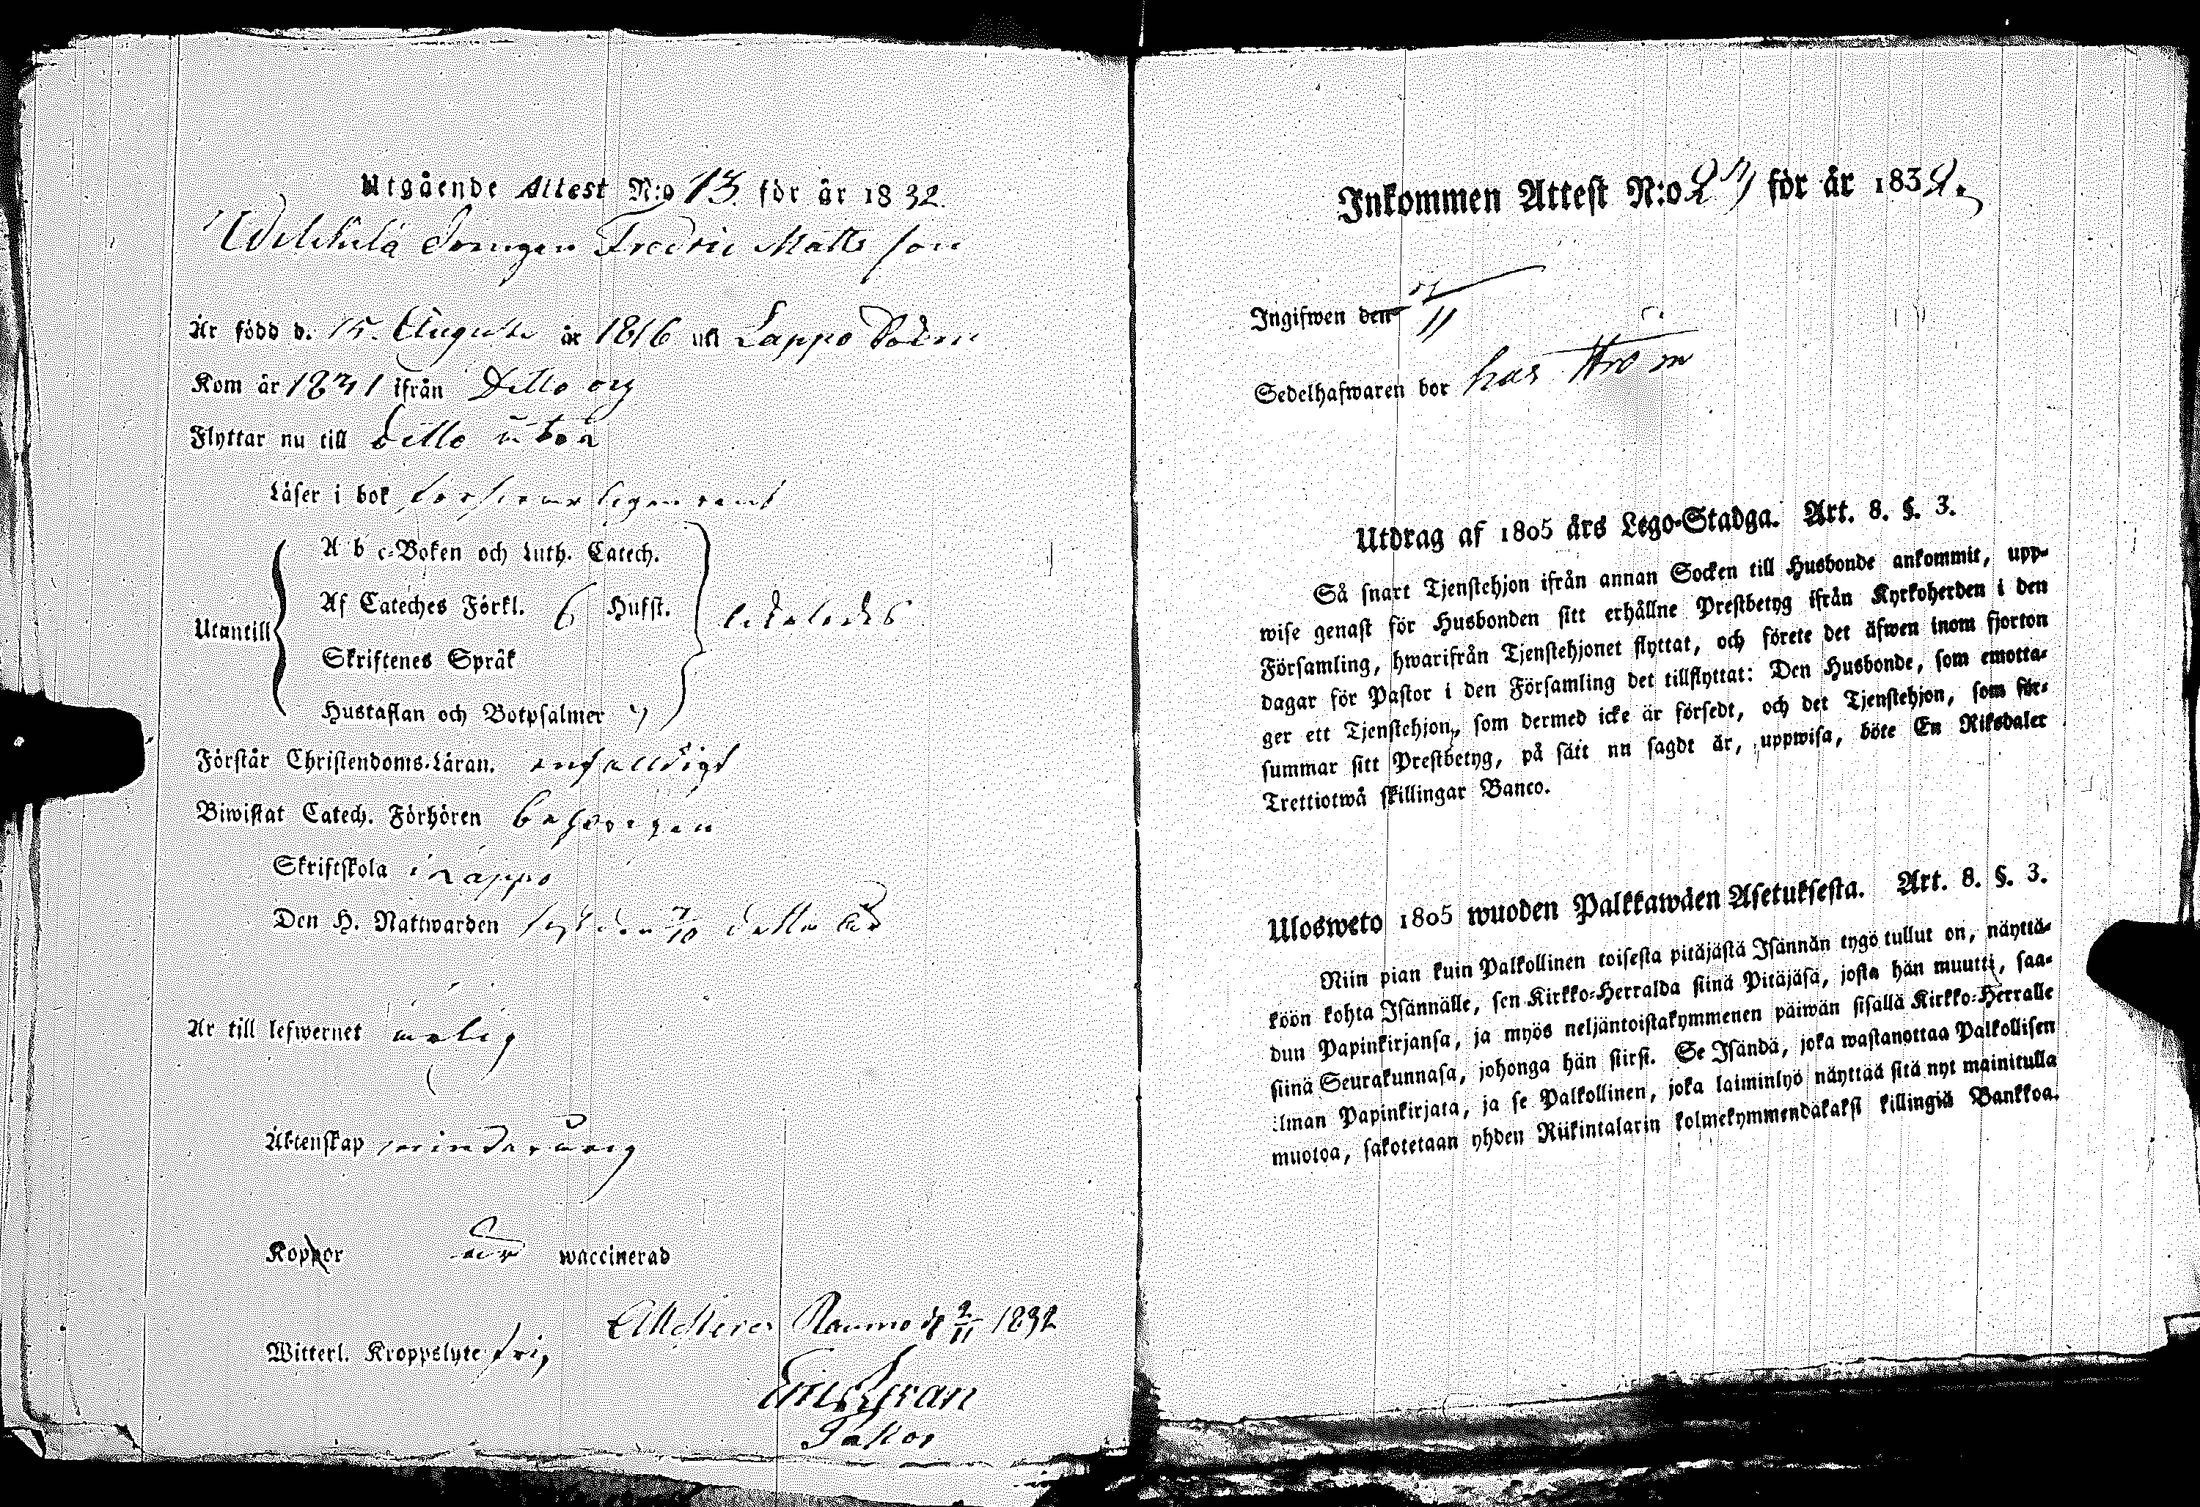 Utgående Attest N:o 13. för år 1832.
Drengen Fredric Matts son
Är född d. 15. Augusti år 1816 uti Lappo Sokn
Kom år 1831 ifrån Ditto og
Flyttar nu till ditto
Läser i bok försvarligen rent
Utantill
A b c-Boken och Luth. Catech.
Af Cateches Förkl. 6 Hufst.
Skriftenes Språk
Hustaflan och Botpsalmer
likaledes
Förstår Christendoms-Läran. enfalldigt
Biwistat Catech. Förhören behörigen
Skriftskola i Lappo
Den H. Nattwarden sist den 7/10 detta år
Är till lefwernet ärlig
Äktenskap minderårig
Koppor är waccinerad
Witterl. Kroppslyte fri,
Attesterar Raumo d 2/11 1832
Eric
Pastor
Inkommen Attest N:o 27 för år 1832.
Ingifwen den 7/11
Sedelhafwaren bor hos
Utdrag af 1805 års Lego-Stadga. Art. 8. §. 3.
Så snart Tjenstehjon ifrån annan Socken till Husbonde ankommit, upp-
wise genast för Husbonden sitt erhållne Prestbetyg ifrån Kyrkoherden i den
Församling, hwarifrån Tjenstehjonet flyttat, och förete det äfwen inom fjorton
dagar för Pastor i den Församling det tillflyttat: Den Husbonde, som emotta-
ger ett Tjenstehjon, som dermed icke är försedt, och det Tjenstehjon, som för-
summar sitt Prestbetyg, på sätt nu sagdt är, uppwisa, böte En Riksdaler
Trettiotwå skillingar Banco.
Ulosweto 1805 wuoden Palkkawäen Asetuksesta. Art. 8. §. 3.
Niin pian kuin Palkollinen toisesta pitäjästä Isännän tygö tullut on, näyttä-
köön kohta Isännälle, sen Kirkko-Herralda siinä Pitäjäsä, josta hän muutti, saa-
dun Papinkirjansa, ja myös neljäntoistakymmenen päiwän sisällä Kirkko-Herralle
siinä Seurakunnasa, johonga hän siirsi. Se Isändä, joka wastanottaa Palkollisen
ilman Papinkirjata, ja se Palkollinen, joka laiminlyö näyttää sitä nyt mainitulla
muotoa, sakotetaan yhden Riikintalarin kolmekymmendäkaksi killingiä Bankkoa.